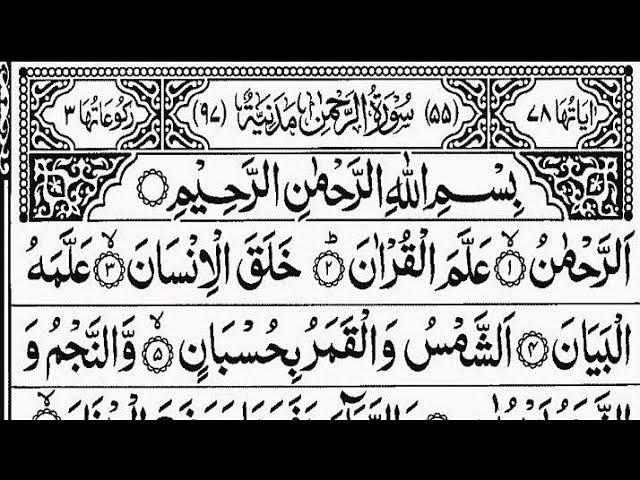 اٰیَاتُهَا ۷۸ (۵۵) سُوْرَةُ الرَّحْمٰنِ مَدَنِیَّةٌ (۹۷) رُکُوْعَاتُهَا ۳
بِسْمِ اللهِ الرَّحْمٰنِ الرَّحِیْمِ
اَلرَّحْمٰنُ ۙ۱ عَلَّمَ الْقُرْاٰنَ ؕ۲ خَلَقَ الْاِنْسَانَ ۙ۳ عَلَّمَهُ
الْبَیَانَ ۴ اَلشَّمْسُ وَالْقَمَرُ بِحُسْبَانٍ ۙ۵ وَّالنَّجْمُ وَ